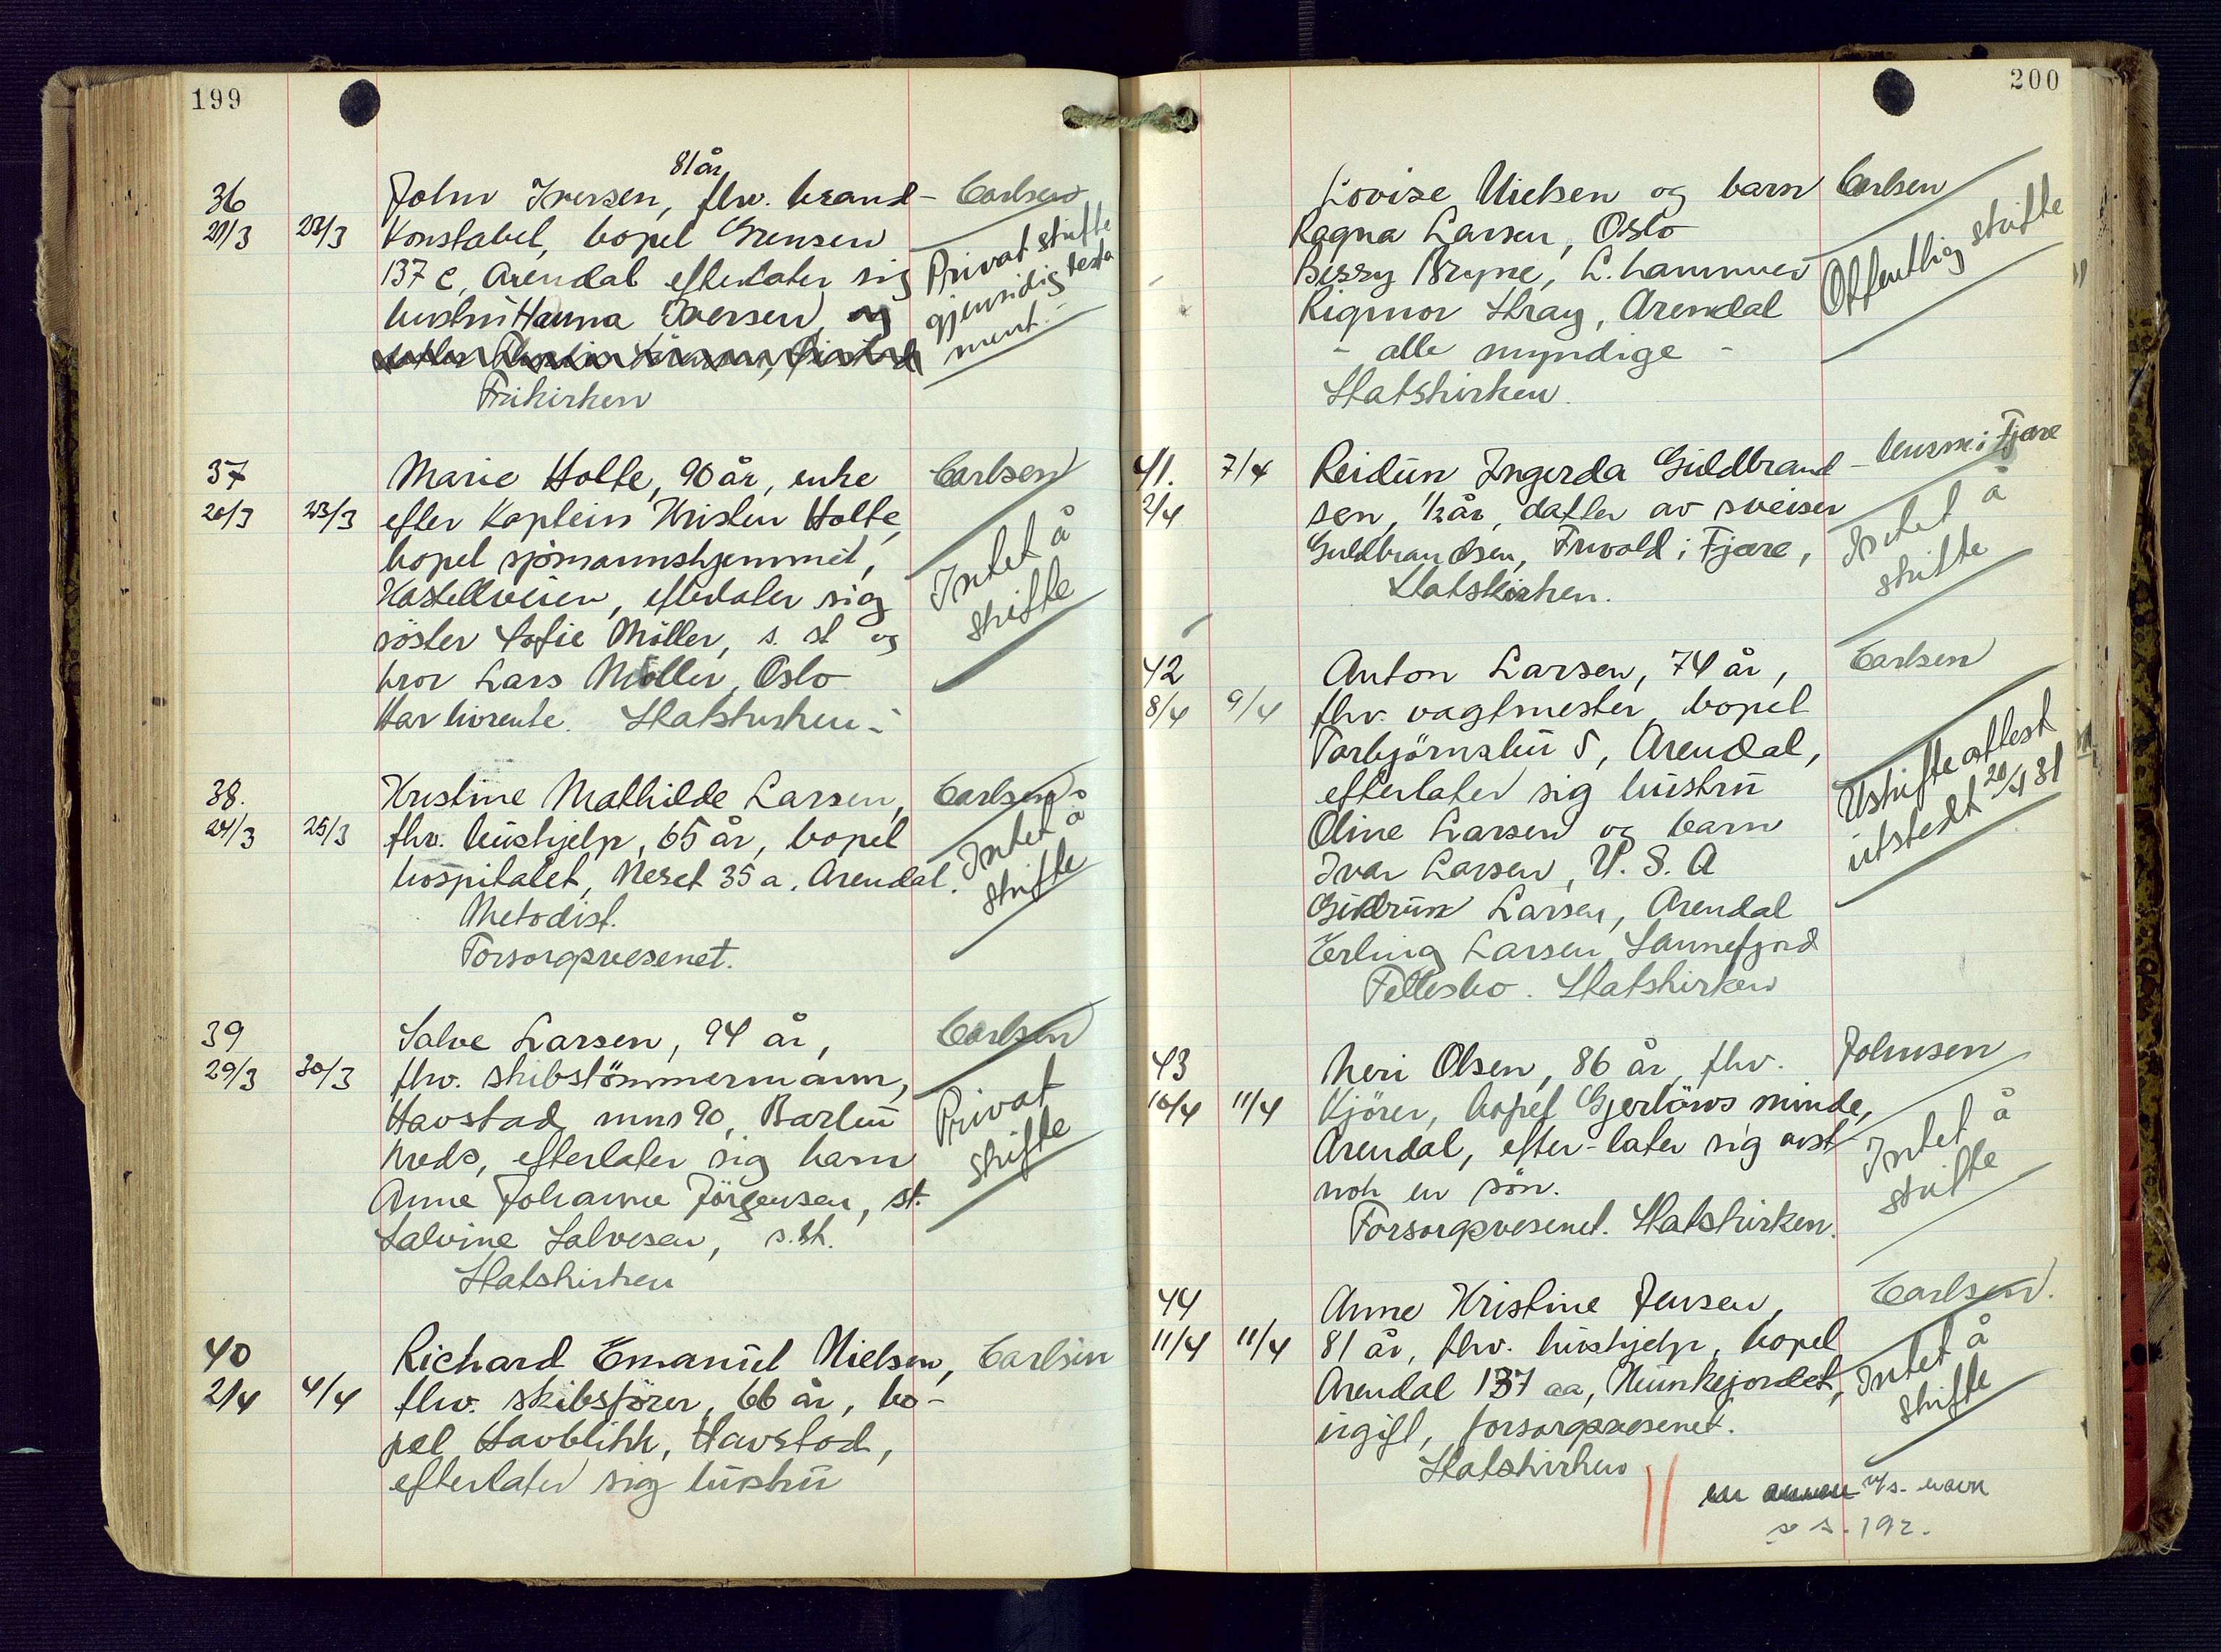 199
36
21/3 23/3
John Iversen, 81 år, fhv. brand-
konstabel, bopel Grensen
137 c, Arendal efterlater sig
hustru Hanna Iversen og
Frikirken
Carlsen
Privat skifte
gjensidig testa
ment.
37
20/3 23/3
Marie Holte, 90 år, enke
efter kaptein Kristen Holte,
bopel sjømannshjemmet,
Kastellveien, efterlater sig
söster Sofie Möller, s. st og
bror Lars Möller, Oslo
Har livrente. Statskirken.
Carlsen
Intet å
skifte
38.
24/3 25/3
Kristine Mathilde Larsen,
fhv. hushjelp, 65 år, bopel
hospitalet, Neset 35 a, Arendal.
Metodist.
Forsorgsvesenet.
Carlsen
Intet å
skifte
39
29/3 30/3
Salve Larsen, 94 år,
fhv. skibstömmermann,
Havstad mnr 90, Barbu
kreds, efterlater sig barn
Anne Johanne Jörgensen, st.
Salvine Salvesen, s. st.
Statskirken
Carlsen
Privat
skifte
40
2/4 4/4
Richard Emanuel Nielsen,
fhv. skibsförer, 66 år, bo-
pel Havblikk, Havstad,
efterlater sig hustru
Carlsen
200
Lovise Nielsen og barn
Ragna Larsen, Oslo
Bessy Bryne, L.hammer
Rigmor Stray, Arendal
- alle myndige -
Statskirken.
Carlsen
Offentlig skifte
41. 7/4
2/4
Reidun Ingerda Guldbrand-
sen, 1/2 år, datter av sveiser
Guldbrandsen, Frivold i Fjære,
Statskirken.
i Fjære
Intet å
skifte
42
8/4 9/4
Anton Larsen, 74 år,
fhv. vagtmester, bopel
Torbjörnsbu 5, Arendal,
efterlater sig hustru
Oline Larsen og barn
Ivar Larsen, U. S. A
Gudrun Larsen, Arendal
Erling Larsen, Sannefjord
Fellesbo. Statskirken
Carlsen
Uskifteattest
utstedt 20/4 31
43
10/4 11/4
Neri Olsen, 86 år, fhv.
kjörer, bopel Gjerlöws minde,
Arendal, efter-later sig avst
nok en sön.
Forsorgsvesenet. Statskirken.
Johnsen
Intet å
skifte
44
11/4 11/4
Anne Kristine Jensen,
81 år, fhv. hushjelp, bopel
Arendal 137 aa, Munkejordet,
ugift, forsorgsvesenet.
Statskirken
Carlsen.
Intet å
skifte
navn
se s. 192.